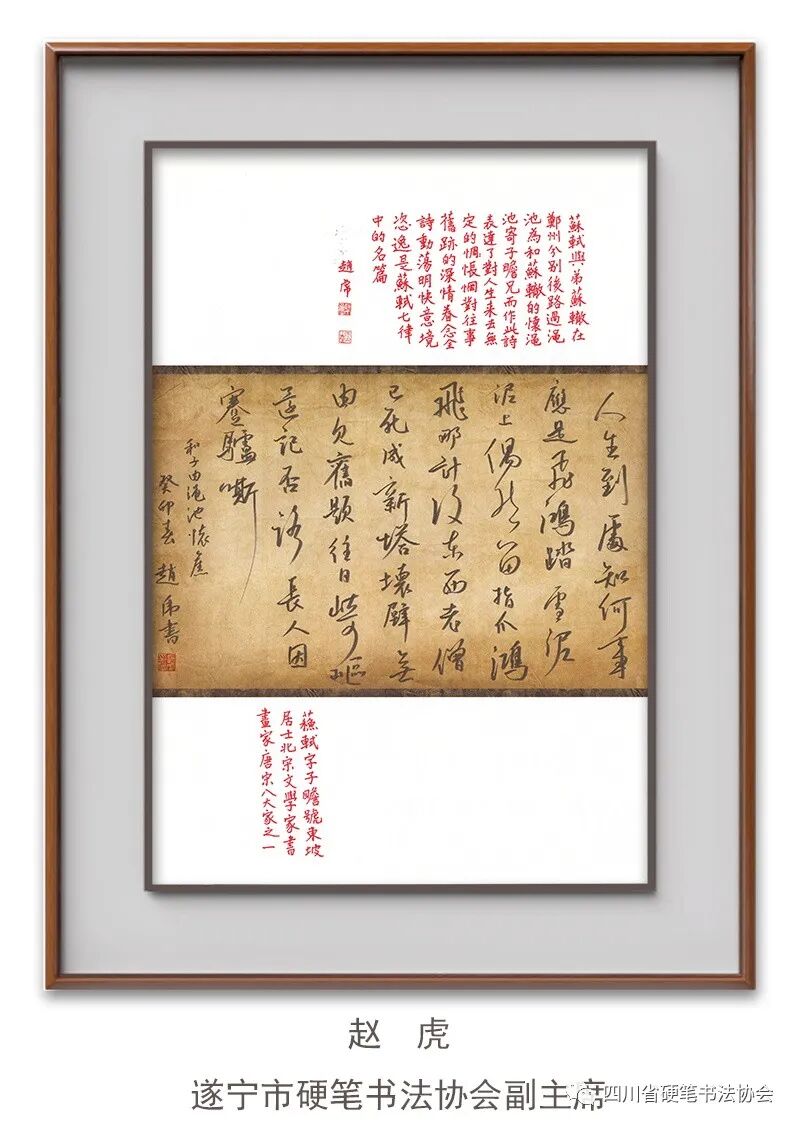 蘇軾與弟蘇轍在
鄭州分别後路過澠
池為和蘇轍的懷澠
池寄子瞻兄而作此詩
表達了對人生来去無
定的惆悵個對往事
舊跡的深情眷念全
詩動蕩明快意境
恣逸是蘇軾七律
中的名篇
趙虎
人生到處知何事
應是飛鴻踏雪泥
泥上偶然留指爪鴻
飛那計復東西老僧
已死成新塔壞壁無
由見舊題往日崎嶇
還記否路長人困
蹇驢嘶
和子由澠池懷舊
癸卯春 趙虎書
蘇軾字子瞻號東坡
居士北宋文學家書
畫家唐宋八大家之一
赵 虎
遂宁市硬笔书法协会副主席
四川省硬笔书法协会